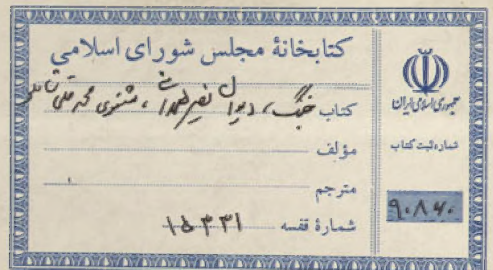 کتابخانهٔ مجلس شورای اسلامی
کتاب جنگ، دیوان نصیر همدانی، مثنوی محمد قلی
مؤلف
مترجم
شمارهٔ قفسه ۱۵۳۳۱
جمهوری اسلامی ایران
شماره ثبت کتاب
۹۰۸۷۰